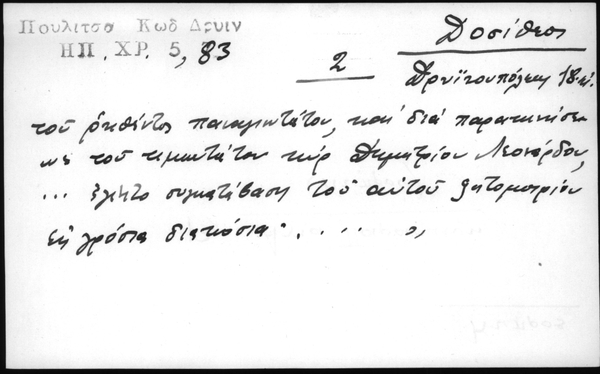 Πουλιτσα Κωδ Δρυιν
ΗΠ. ΧΡ. 5, 83
Δοσίθεος
2
Δρυϊνουπόλεως 18 αἰ.
τοῦ ῥηθέντος παναγιωτάτου, καί διά παρακινήσεως
τοῦ τιμιωτάτου κύρ Δημητρίου Λεονάρδου,
... ἔγινε συγκατάβαση τοῦ αὐτοῦ
εἰς γρόσια διακόσια . . . . . »